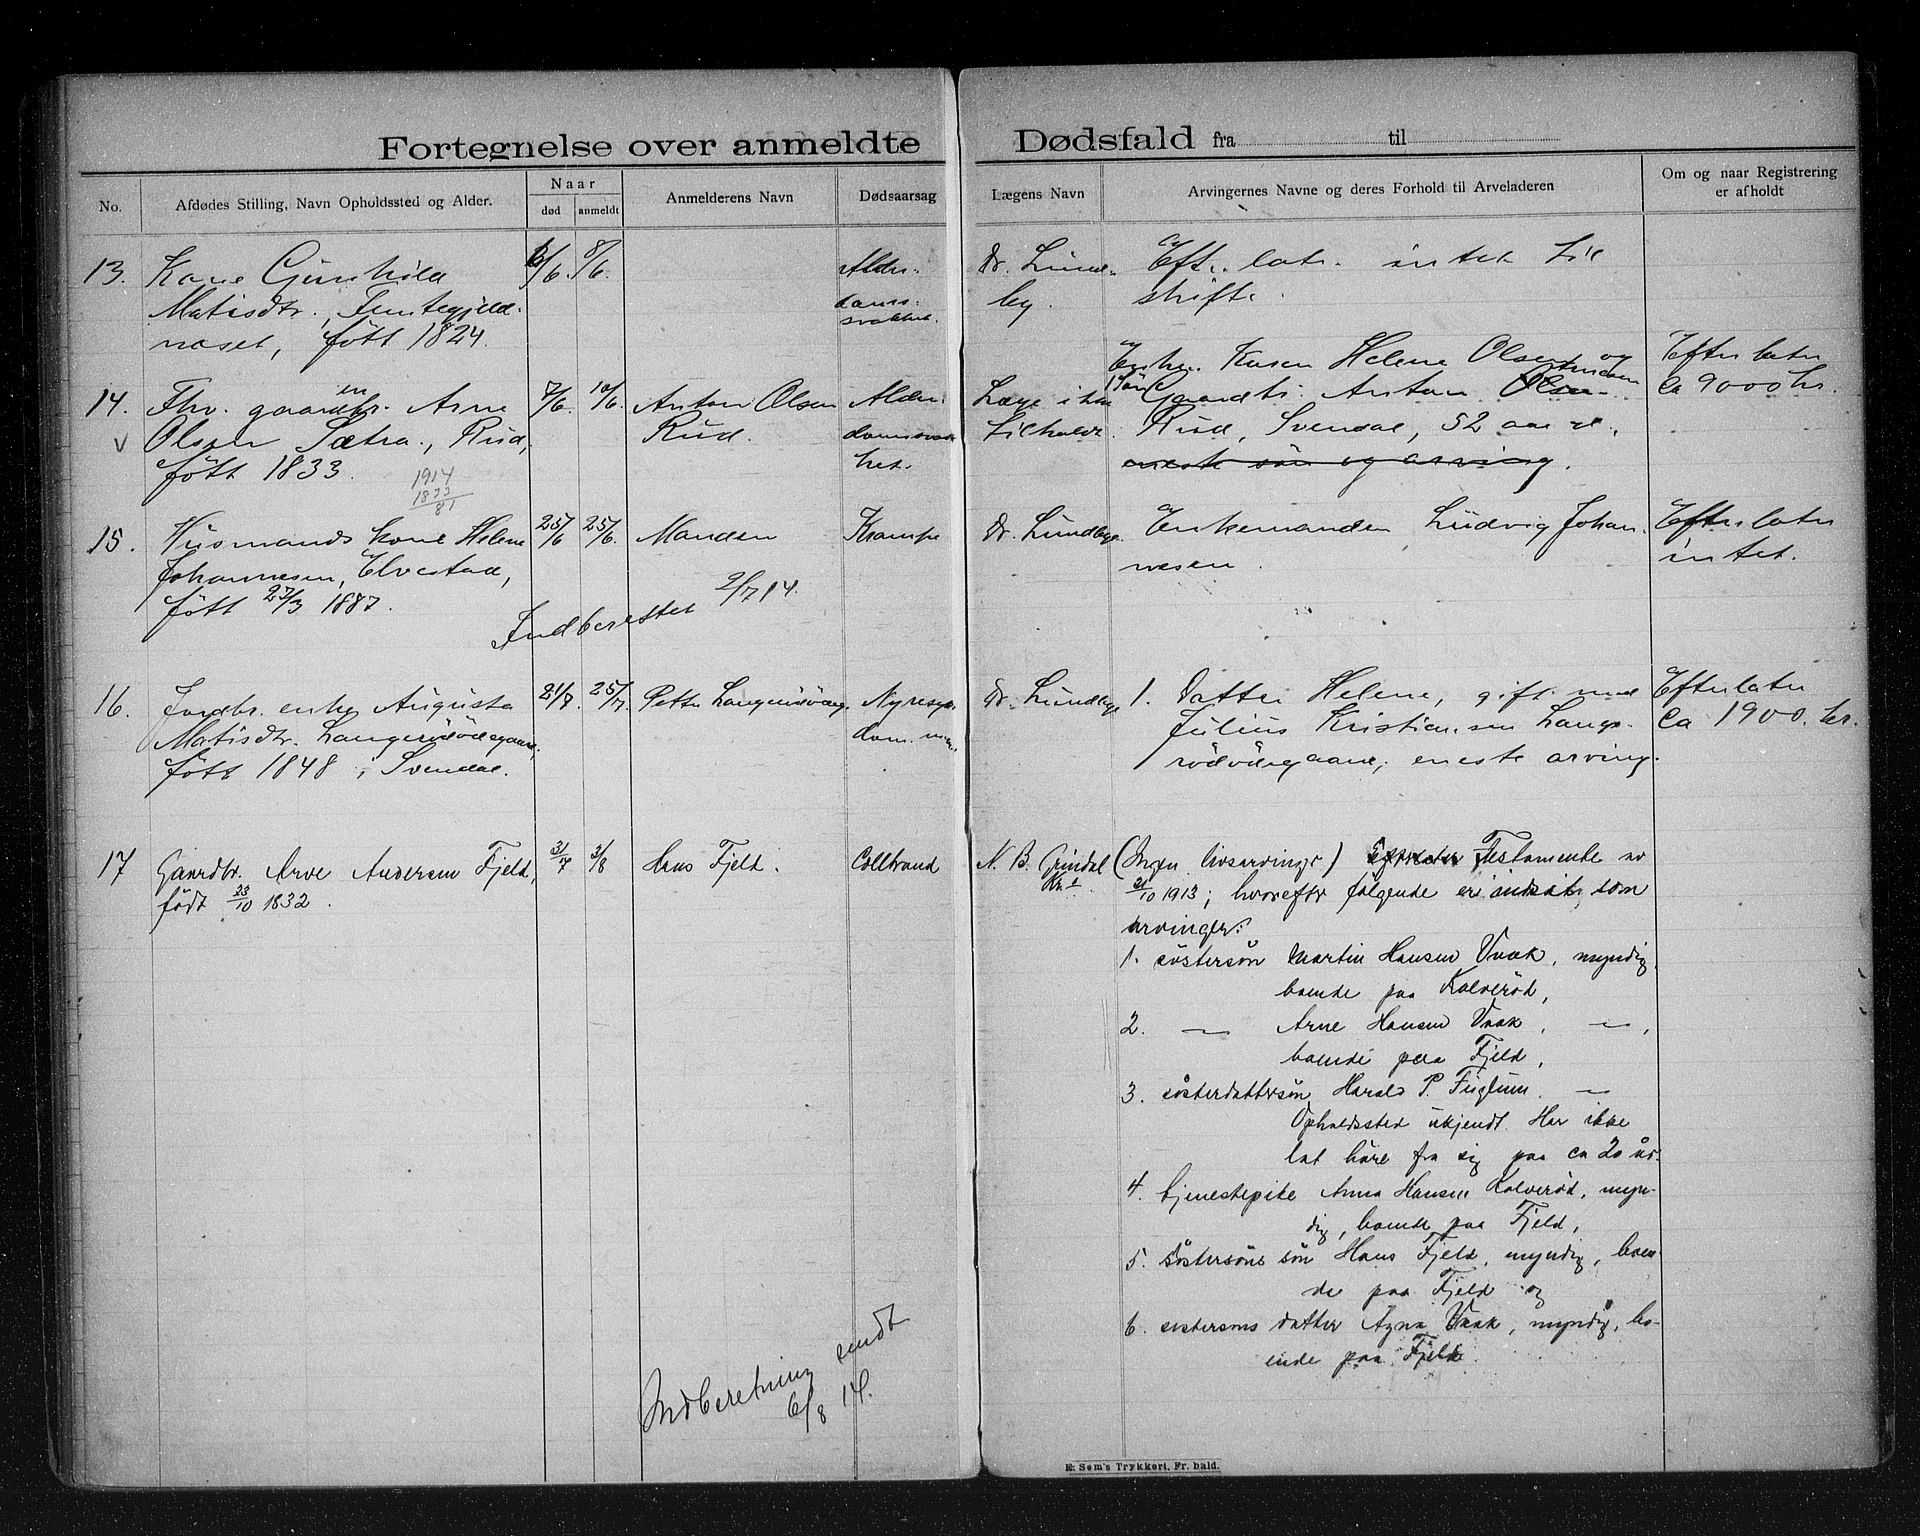 Fortegnelse over anmeldte Dødsfald fra til
No.
Afdødes Stilling, Navn Opholdssted og Alder.
Naar
død
anmeldt
Anmelderens Navn
Dødsaarsag
Lægens Navn
Arvingernes Navne og deres Forhold til Arveladeren
Om og naar Registrering
er afholdt
13. Kone Gunhild
Matisdtr.,
født 1824.
6/6. 8/6.
Alder-
doms-
svakhet.
Dr. Lund-
by.
Eft. lat. intet til
skifte.
14. Fhv. gaardbr. Arne
Olsen Sætra, Rud,
født 1833.
1914
1833
81
7/6. 10/6.
Anton Olsen
Rud.
Alder-
domssvak
het.
Læge ikke
tilkaldt.
Enken Karen Helene Olsen og
Sön Gaardbr. Anton Olsen
Rud, Svendal, 52 aar gl.,
eneste sön og arving.
Efterlater
ca 9000 kr.
15. Husmands kone Helene
Johannesen, Elvestad,
født 27/3 1887.
25/6 25/6.
Manden
Krampe
Dr. Lundby.
Enkemanden Ludvig Johan-
nesen.
Efterlater
intet.
Indberettet 2/7 14.
16. Jordbr. enke Augusta
Matisdtr.
født 1848, Svendal.
21/7. 25/7.
Petter
Nyresyk-
dom
Dr. Lundby.
1. Datter Helene, gift med
Julius Kristiansen Langs-
rödödegaard, eneste arving.
Efterlater
Ca 1900 kr.
17 Gaardbr. Arve Andersen Fjeld,
født 23/10 1832.
31/7 3/8
Hans Fjeld.
Coldbrand
N. B. Grindal
Kr.a
(Ingen livsarvinger) Testamente av
21/10 1913; hvorefter følgende er indsat som
arvinger:
1. söstersön Martin Hansen Vaak, myndig,
boende paa Kolveröd,
2. — Arne Hansen Vaak, —,
boende paa Fjeld,
3. sösterdattersön Harald P. Fuglum. —
Opholdssted ukjendt. Har ikke
lat höre fra sig paa ca 20 år.
4. tjenestepike Anna Hansen Kolveröd, myn-
dig, boende paa Fjeld,
5. söstersöns sön Hans Fjeld, myndig, boen-
de paa Fjeld og
6. söstersöns datter Agna Vaak, myndig, bo-
ende paa Fjeld.
Indberetning sendt
6/8 14.
E. Sem's Trykkeri, Fr.hald.